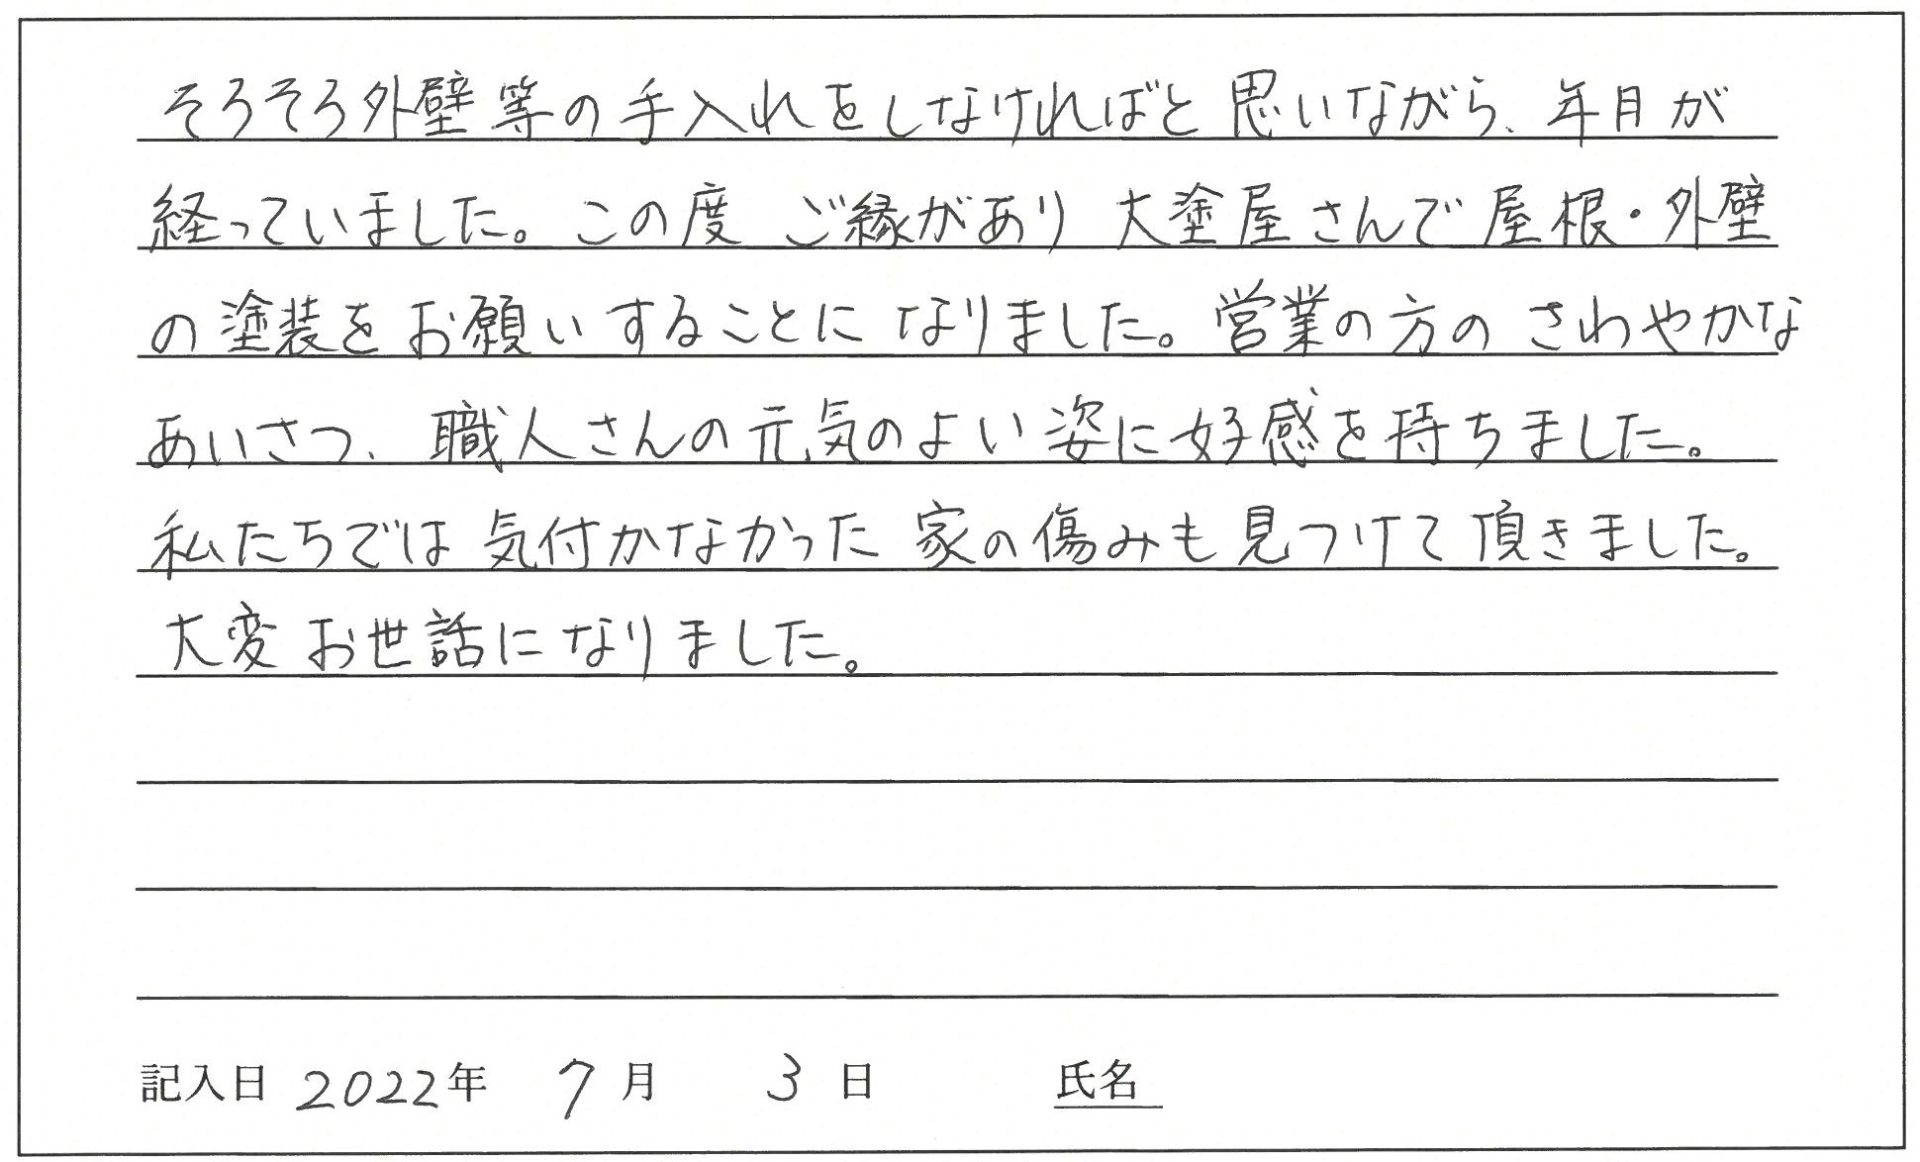 そろそろ外壁等の手入れをしなければと思いながら、年月が
経っていました。この度 ご縁があり 大塗屋さんで屋根・外壁
の塗装をお願いすることになりました。営業の方のさわやかな
あいさつ、職人さんの元気のよい姿に好感を持ちました。
私たちでは気付かなかった家の傷みも見つけて頂きました。
大変お世話になりました。
記入日 2022年 7月 3日 氏名